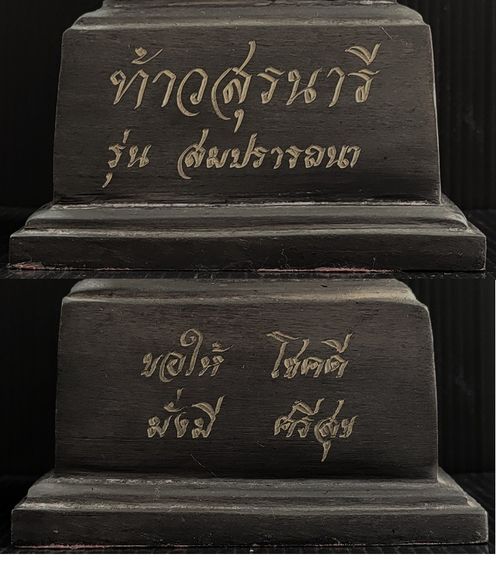 ท้าวสุรนารี
รุ่น สมปรารถนา
ขอให้ โชคดี
มั่งมี ศรีสุข